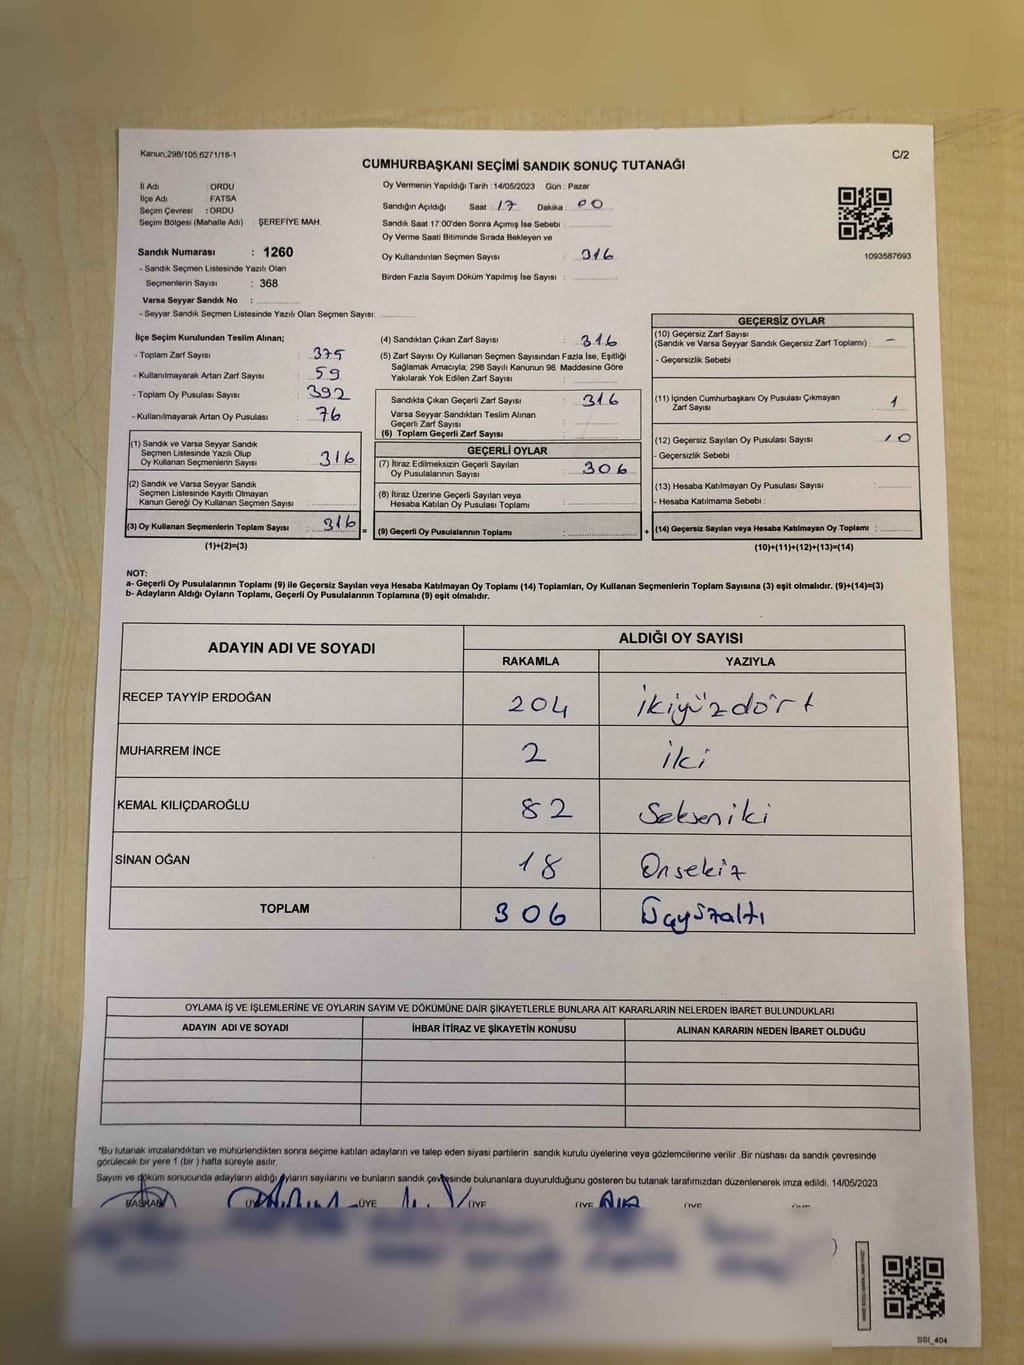 Kanun,298/105,6271/18-1
C/2
CUMHURBAŞKANI SEÇİMİ SANDIK SONUÇ TUTANAĞI
İl Adı : ORDU
İlçe Adı : FATSA
Seçim Çevresi : ORDU
Seçim Bölgesi (Mahalle Adi) : ŞEREFİYE MAH.
Sandık Numarası : 1260
- Sandık Seçmen Listesinde Yazılı Olan
Seçmenlerin Sayısı : 368
Varsa Seyyar Sandık No :
- Seyyar Sandık Seçmen Listesinde Yazılı Olan Seçmen Sayısı:
Oy Vermenin Yapıldığı Tarih : 14/05/2023 Gün : Pazar
Sandığın Açıldığı Saat : 17 Dakika : 00
Sandık Saat 17:00'den Sonra Açımış İse Sebebi :
Oy Verme Saati Bitiminde Sırada Bekleyen ve
Oy Kullandırılan Seçmen Sayısı : 316
Birden Fazla Sayım Döküm Yapılmış İse Sayısı :
1093587693
İlçe Seçim Kurulundan Teslim Alınan;
- Toplam Zarf Sayısı : 375
- Kullanılmayarak Artan Zarf Sayısı : 59
- Toplam Oy Pusulası Sayısı : 392
- Kullanılmayarak Artan Oy Pusulası : 76
(1) Sandık ve Varsa Seyyar Sandık
Seçmen Listesinde Yazılı Olup
Oy Kullanan Seçmenlerin Sayısı : 316
(2) Sandık ve Varsa Seyyar Sandık
Seçmen Listesinde Kayıtlı Olmayan
Kanun Gereği Oy Kullanan Seçmen Sayısı :
(3) Oy Kullanan Seçmenlerin Toplam Sayısı : 316 =
(1)+(2)=(3)
(4) Sandıktan Çıkan Zarf Sayısı : 316
(5) Zarf Sayısı Oy Kullanan Seçmen Sayısından Fazla İse, Eşitliği
Sağlamak Amacıyla, 298 Sayılı Kanunun 98. Maddesine Göre
Yakılarak Yok Edilen Zarf Sayısı :
Sandıkta Çıkan Geçerli Zarf Sayısı : 316
Varsa Seyyar Sandıktan Teslim Alınan
Geçerli Zarf Sayısı :
(6) Toplam Geçerli Zarf Sayısı :
GEÇERLİ OYLAR
(7) İtiraz Edilmeksizin Geçerli Sayılan
Oy Pusulalarının Sayısı : 306
(8) İtiraz Üzerine Geçerli Sayılan veya
Hesaba Katılan Oy Pusulası Toplamı :
(9) Geçerli Oy Pusulalarının Toplamı : +
GEÇERSİZ OYLAR
(10) Geçersiz Zarf Sayısı
(Sandık ve Varsa Seyyar Sandık Geçersiz Zarf Toplamı) : -
- Geçersizlik Sebebi :
(11) İçinden Cumhurbaşkanı Oy Pusulası Çıkmayan
Zarf Sayısı : 1
(12) Geçersiz Sayılan Oy Pusulası Sayısı : 10
- Geçersizlik Sebebi :
(13) Hesaba Katılmayan Oy Pusulası Sayısı :
- Hesaba Katılmama Sebebi :
(14) Geçersiz Sayılan veya Hesaba Katılmayan Oy Toplamı :
(10)+(11)+(12)+(13)=(14)
NOT:
a- Geçerli Oy Pusulalarının Toplamı (9) ile Geçersiz Sayılan veya Hesaba Katılmayan Oy Toplamı (14) Toplamları, Oy Kullanan Seçmenlerin Toplam Sayısına (3) eşit olmalıdır. (9)+(14)=(3)
b- Adayların Aldığı Oyların Toplamı, Geçerli Oy Pusulalarının Toplamına (9) eşit olmalıdır.
ADAYIN ADI VE SOYADI
ALDIĞI OY SAYISI
RAKAMLA YAZIYLA
RECEP TAYYİP ERDOĞAN 204 ikiyüzdört
MUHARREM İNCE 2 iki
KEMAL KILIÇDAROĞLU 82 Sekseniki
SİNAN OĞAN 18 Onsekiz
TOPLAM 306 Üçyüzaltı
OYLAMA İŞ VE İŞLEMLERİNE VE OYLARIN SAYIM VE DÖKÜMÜNE DAİR ŞİKAYETLERLE BUNLARA AİT KARARLARIN NELERDEN İBARET BULUNDUKLARI
ADAYIN ADI VE SOYADI İHBAR İTİRAZ VE ŞİKAYETİN KONUSU ALINAN KARARIN NEDEN İBARET OLDUĞU
*Bu tutanak imzalandıktan ve mühürlendikten sonra seçime katılan adayların ve talep eden siyasi partilerin sandık kurulu üyelerine veya gözlemcilerine verilir .Bir nüshası da sandık çevresinde
görülecek bir yere 1 (bir ) hafta süreyle asılır.
Sayım ve döküm sonucunda adayların aldığı oyların sayılarını ve bunların sandık çevresinde bulunanlara duyurulduğunu gösteren bu tutanak tarafımızdan düzenlenerek imza edildi. 14/05/2023
BAŞKAN ÜYE ÜYE ÜYE ÜYE ÜYE
SSI_404